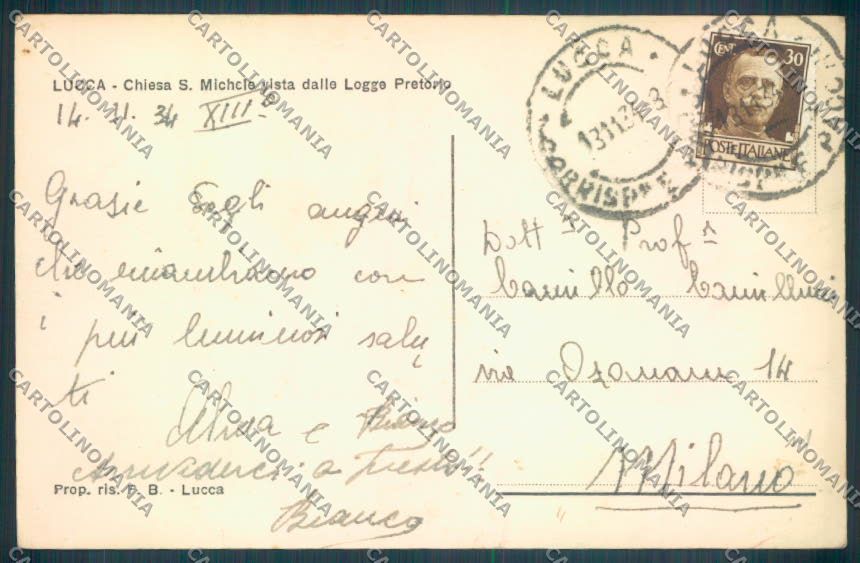 LUCCA - Chiesa S. Michele vista dalle Logge Pretorio
14. 11. 34 XIII°
Grazie degli auguri
che ricambiamo con
i più luminosi salu
ti
e Bianco
Arrivederci a presto!!
Bianco
Prop. ris. F. B. - Lucca
LUCCA
CORRISP
CENT 30
POSTE ITALIANE
Dott. Prof.
Camillo
via Ozanam 14
Milano
CARTOLINOMANIA